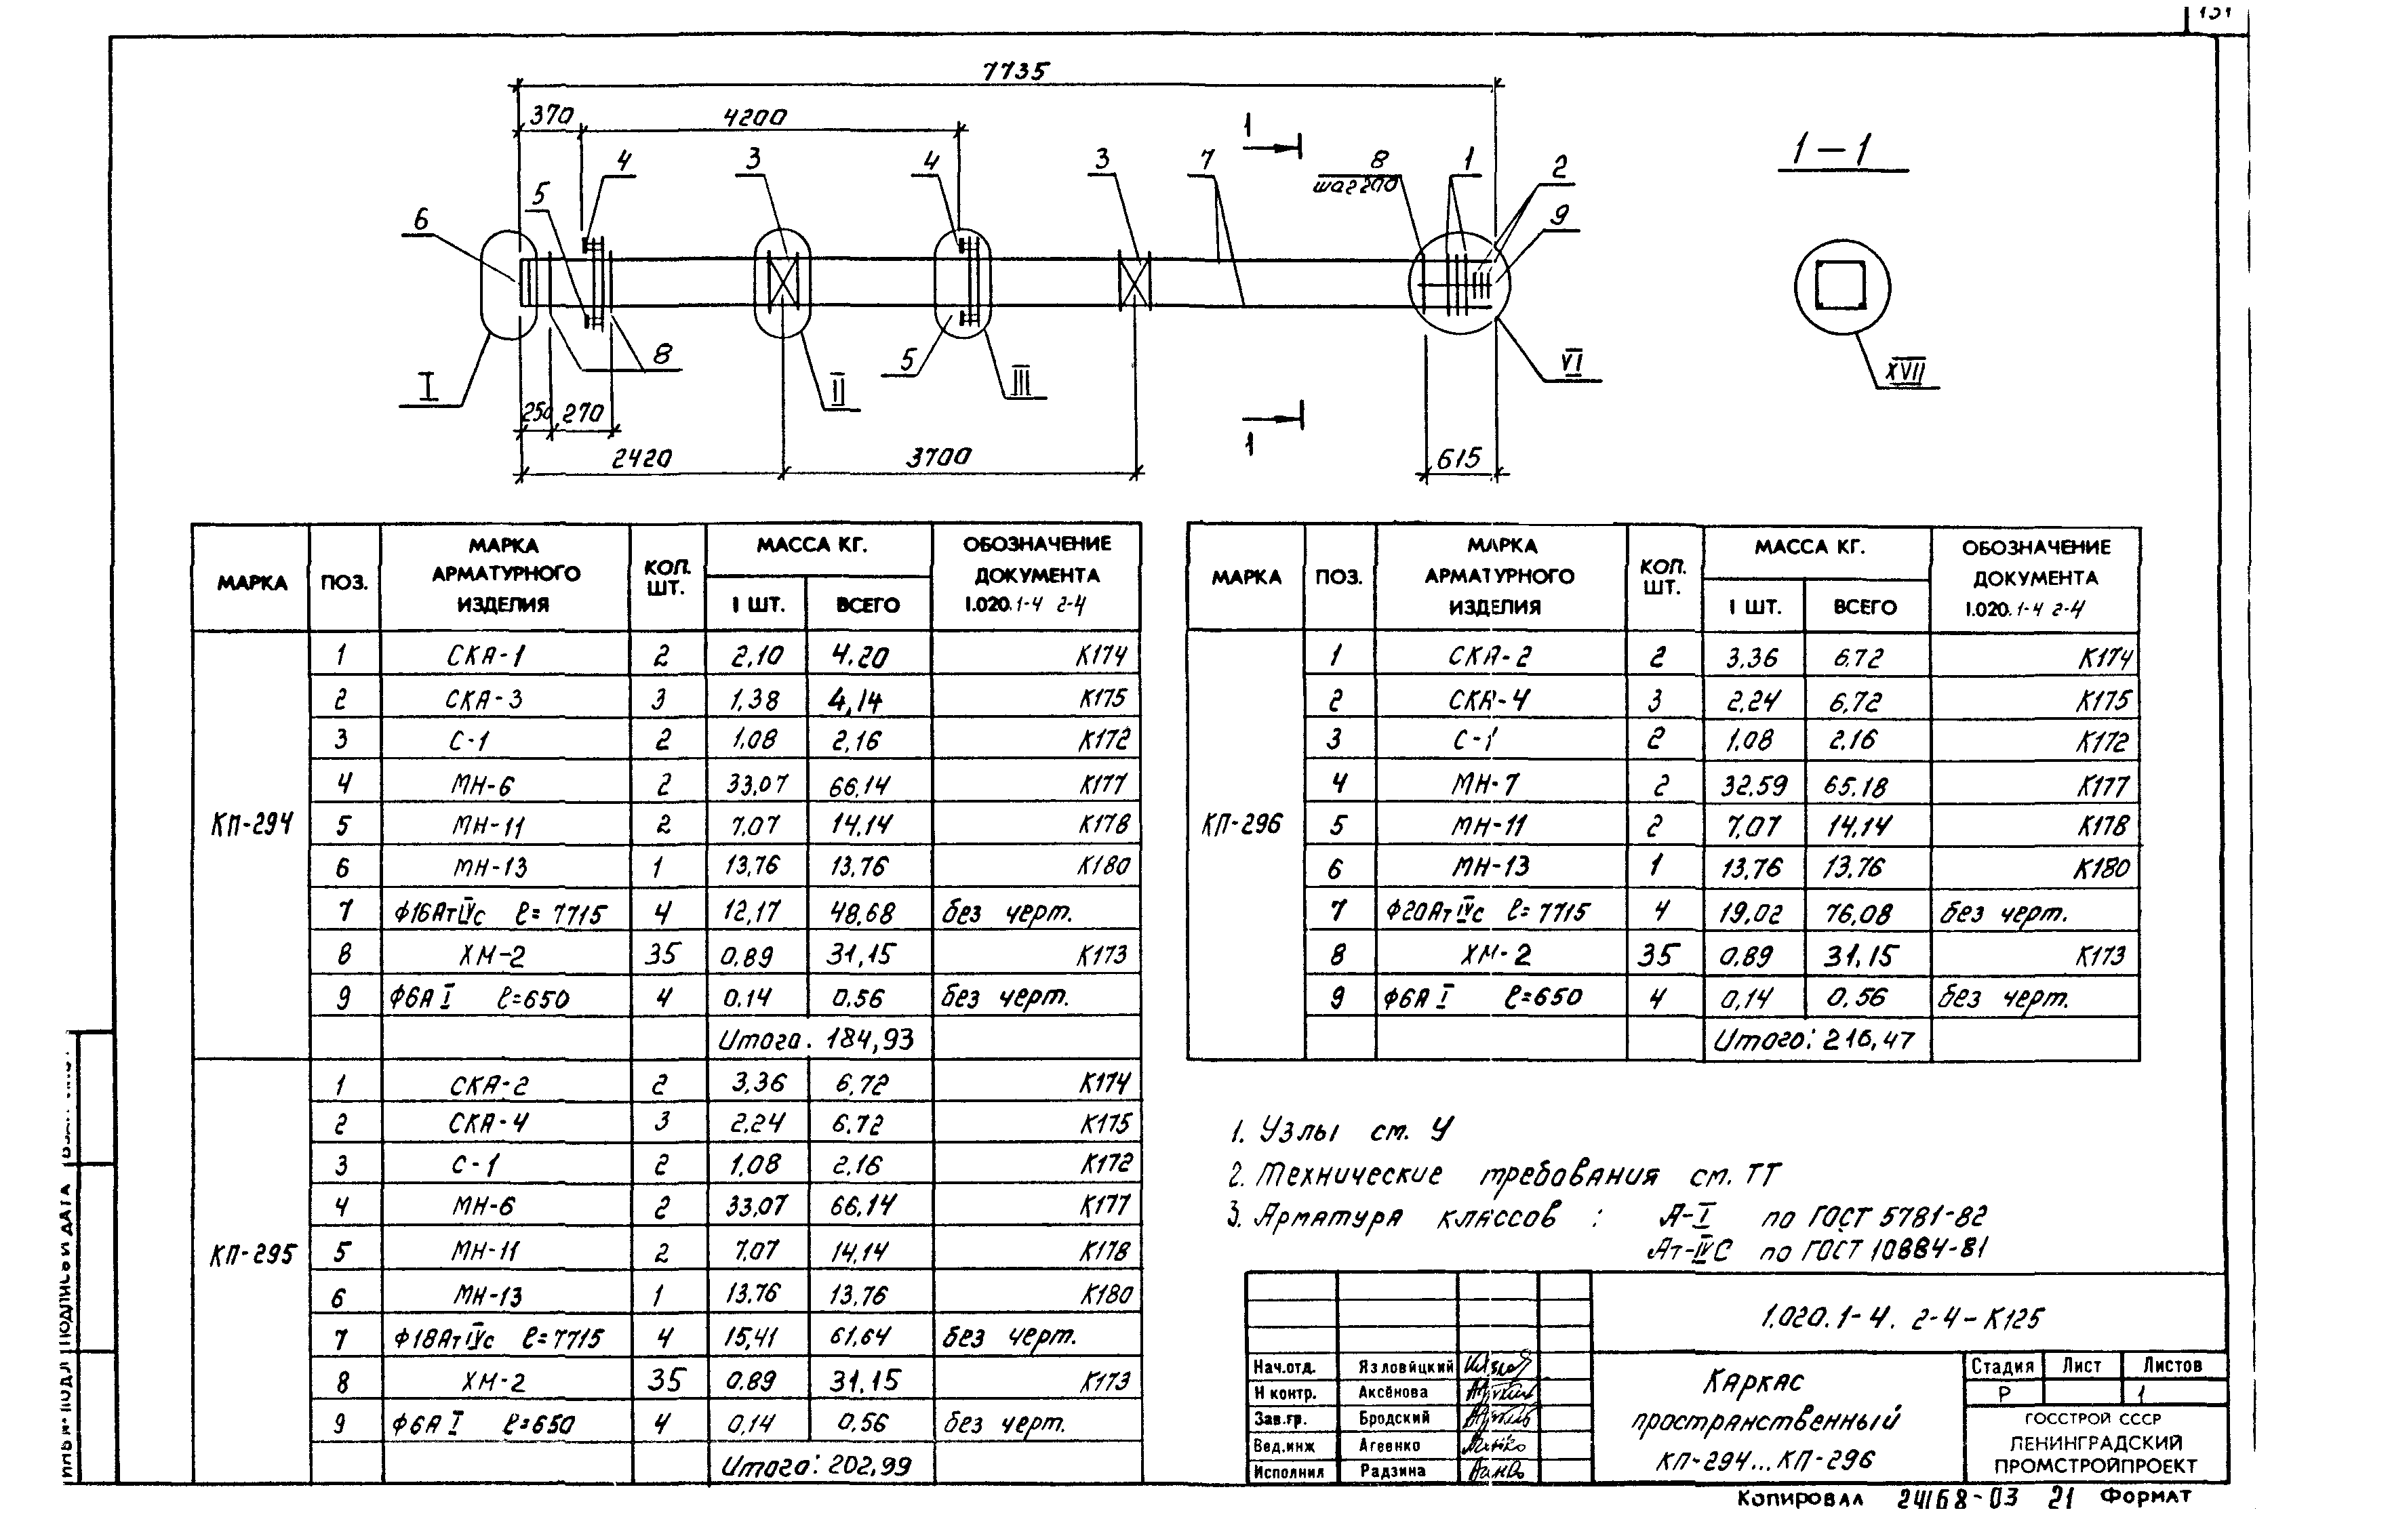 7735
370
4200
1
4
3
4
3
7
8
шаг 200
1
2
9
5
6
1-1
I
8
II
5
III
VI
XVII
250
270
1
2420
3700
615
МАРКА ПОЗ. МАРКА АРМАТУРНОГО ИЗДЕЛИЯ КОЛ. ШТ. МАССА КГ. ОБОЗНАЧЕНИЕ ДОКУМЕНТА 1.020.1-4 2-4
1 ШТ. ВСЕГО
КП-294
1 СКА-1 2 2,10 4.20 К174
2 СКА-3 3 1,38 4,14 К175
3 С-1 2 1,08 2,16 К172
4 МН-6 2 33,07 66,14 К177
5 МН-11 2 7,07 14,14 К178
6 МН-13 1 13,76 13,76 К180
7 Ф16АтIVс ℓ=7715 4 12,17 48,68 без черт.
8 ХМ-2 35 0,89 31,15 К173
9 Ф6А I ℓ=650 4 0.14 0.56 без черт.
Итого: 184,93
КП-295
1 СКА-2 2 3,36 6,72 К174
2 СКА-4 3 2,24 6.72 К175
3 С-1 2 1,08 2,16 К172
4 МН-6 2 33,07 66,14 К177
5 МН-11 2 7,07 14,14 К178
6 МН-13 1 13.76 13,76 К180
7 Ф18АтIVс ℓ=7715 4 15,41 61,64 без черт.
8 ХМ-2 35 0.89 31.15 К173
9 Ф6А I ℓ=650 4 0,14 0,56 без черт.
Итого: 202,99
МАРКА ПОЗ. МАРКА АРМАТУРНОГО ИЗДЕЛИЯ КОЛ. ШТ. МАССА КГ. ОБОЗНАЧЕНИЕ ДОКУМЕНТА 1.020.1-4 2-4
1 ШТ. ВСЕГО
КП-296
1 СКА-2 2 3,36 6,72 К174
2 СКА-4 3 2,24 6,72 К175
3 С-1 2 1,08 2,16 К172
4 МН-7 2 32,59 65,18 К177
5 МН-11 2 7,07 14,14 К178
6 МН-13 1 13,76 13,76 К180
7 Ф20АтIVс ℓ=7715 4 19,02 76,08 без черт.
8 ХМ-2 35 0,89 31,15 К173
9 Ф6А I ℓ=650 4 0,14 0.56 без черт.
Итого: 216,47
1. Узлы см. У
2. Технические требования см. ТТ
3. Арматура классов : А-I по ГОСТ 5781-82
Ат-IVС по ГОСТ 10884-81
1.020.1-4. 2-4-К125
Нач.отд. Язловицкий
Н контр. Аксёнова
Зав.гр. Бродский
Вед.инж Агеенко
Исполнил Радзина
Каркас
пространственный
КП-294...КП-296
Стадия Лист Листов
Р 1
ГОССТРОЙ СССР
ЛЕНИНГРАДСКИЙ
ПРОМСТРОЙПРОЕКТ
Копировал 24168-03 21 Формат
ПОДПИСЬ И ДАТА